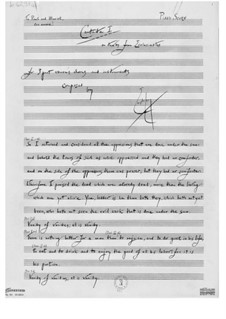 To Paul and
Piano Score
Cantata I
on texts from Ecclesiastes
for 3 part chorus and instruments
composed
by
So I returned and considered all the oppressions that are done under the sun:
and behold the tears of such as were oppressed and they had no comforter;
and on the side of the oppressors there was power; but they had no comforter.
Wherefore I praised the dead which are already dead, more than the living
which are yet alive. Yea, better is he than both they, which hath not yet
been, who hath not seen the evil work that is done under the sun.
Vanity of vanities, all is vanity.
There is nothing better for a man than to
to eat and to drink and to enjoy the good of all his labour, for it is
his portion.
Vanity of vanities, all is vanity.